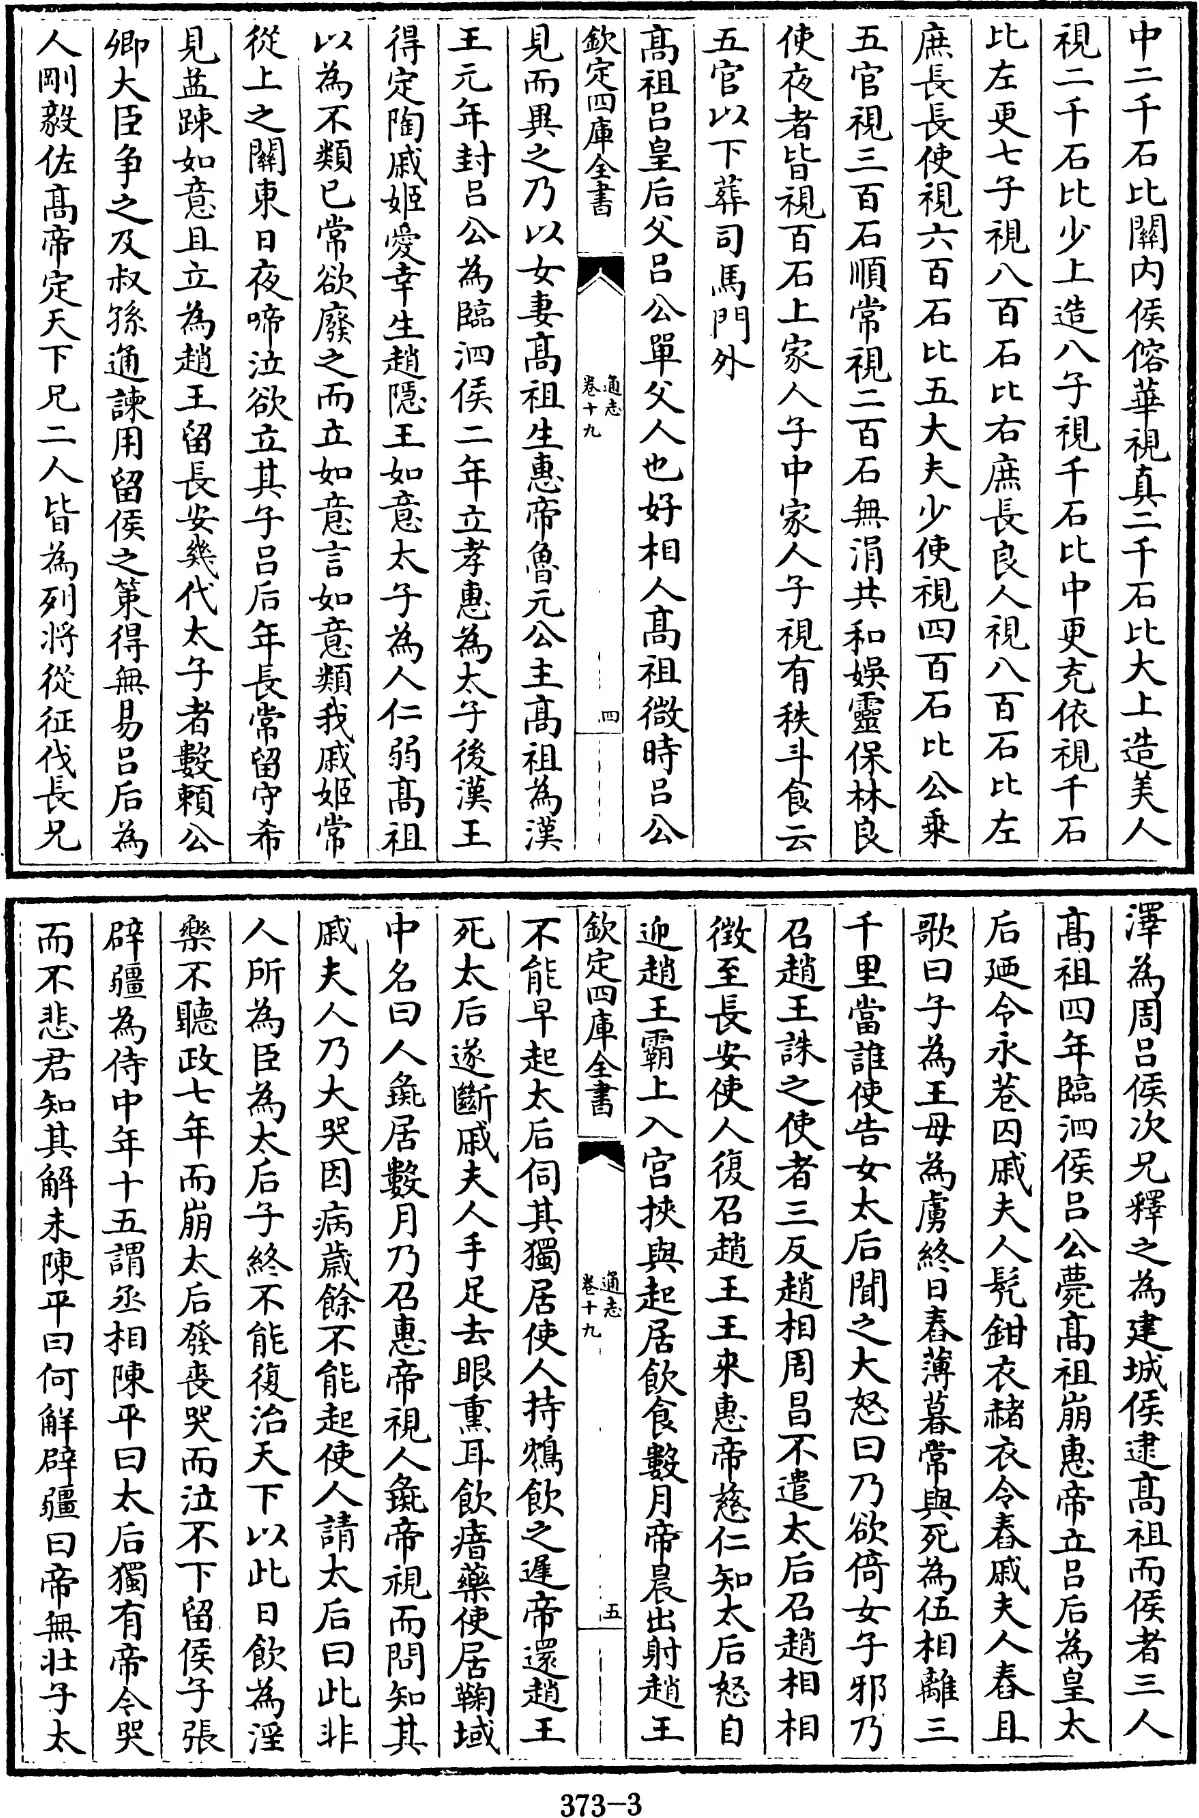 中二千石比關内侯傛華視真二千石比大上造美人
視二千石比少上造八子視千石比中更充依視千石
比左更七子視八百石比右庶長良人視八百石比左
庶長長使視六百石比五大夫少使視四百石比公乘
五官視三百石順常視二百石無涓共和娯靈保林良
使夜者皆視百石上家人子中家人子視有秩斗食云
五官以下葬司馬門外
高祖吕皇后父吕公單父人也好相人高祖微時吕公
欽定四庫全書
通志
卷十九
四
見而異之乃以女妻高祖生惠帝魯元公主高祖為漢
王元年封吕公為臨泗侯二年立孝惠為太子後漢王
得定陶戚姬愛幸生趙隱王如意太子為人仁弱高祖
以為不類已常欲廢之而立如意言如意類我戚姬常
從上之關東日夜啼泣欲立其子吕后年長常留守希
見益踈如意且立為趙王留長安幾代太子者數頼公
卿大臣争之及叔孫通諫用留侯之策得無易吕后為
人剛毅佐高帝定天下兄二人皆為列將從征伐長兄
澤為周吕侯次兄釋之為建城侯逮高祖而侯者三人
高祖四年臨泗侯吕公薨高祖崩惠帝立吕后為皇太
后廼令永巷囚戚夫人髠鉗衣赭衣令舂戚夫人舂且
歌曰子為王母為虜終日舂薄暮常與死為伍相離三
千里當誰使告女太后聞之大怒曰乃欲倚女子邪乃
召趙王誅之使者三反趙相周昌不遣太后召趙相相
徴至長安使人復召趙王王来惠帝慈仁知太后怒自
迎趙王霸上入宫挾與起居飲食數月帝晨出射趙王
欽定四庫全書
通志
卷十九
五
不能早起太后伺其獨居使人持鴆飲之遲帝還趙王
死太后遂斷戚夫人手足去眼熏耳飲瘖藥使居鞠域
中名曰人彘居數月乃召惠帝視人彘帝視而問知其
戚夫人乃大哭因病歲餘不能起使人請太后曰此非
人所為臣為太后子終不能復治天下以此日飲為淫
樂不聽政七年而崩太后發喪哭而泣不下留侯子張
辟疆為侍中年十五謂丞相陳平曰太后獨有帝今哭
而不悲君知其解未陳平曰何解辟疆曰帝無壯子太
373-3